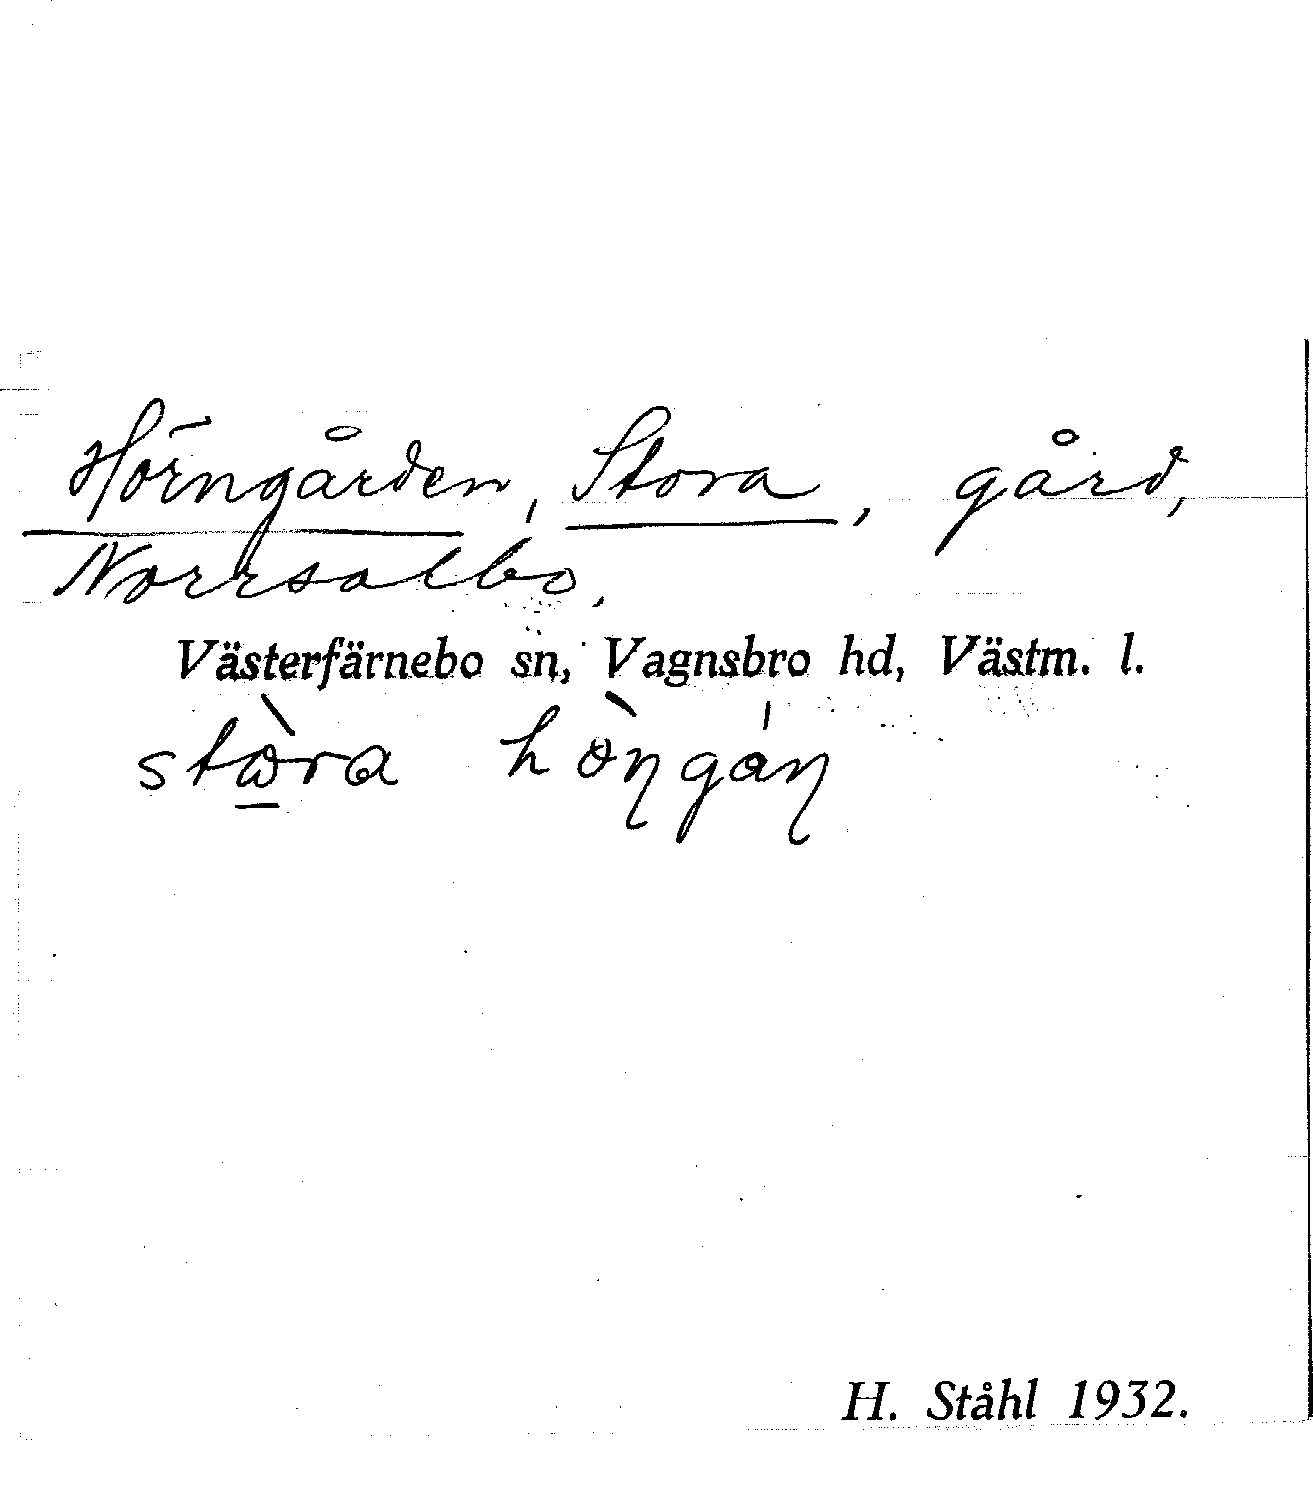 Hörngården, Stora, gård,
Norrsalbo.
Västerfärnebo sn, Vagnsbro hd, Västm. l.
H. Ståhl 1932.